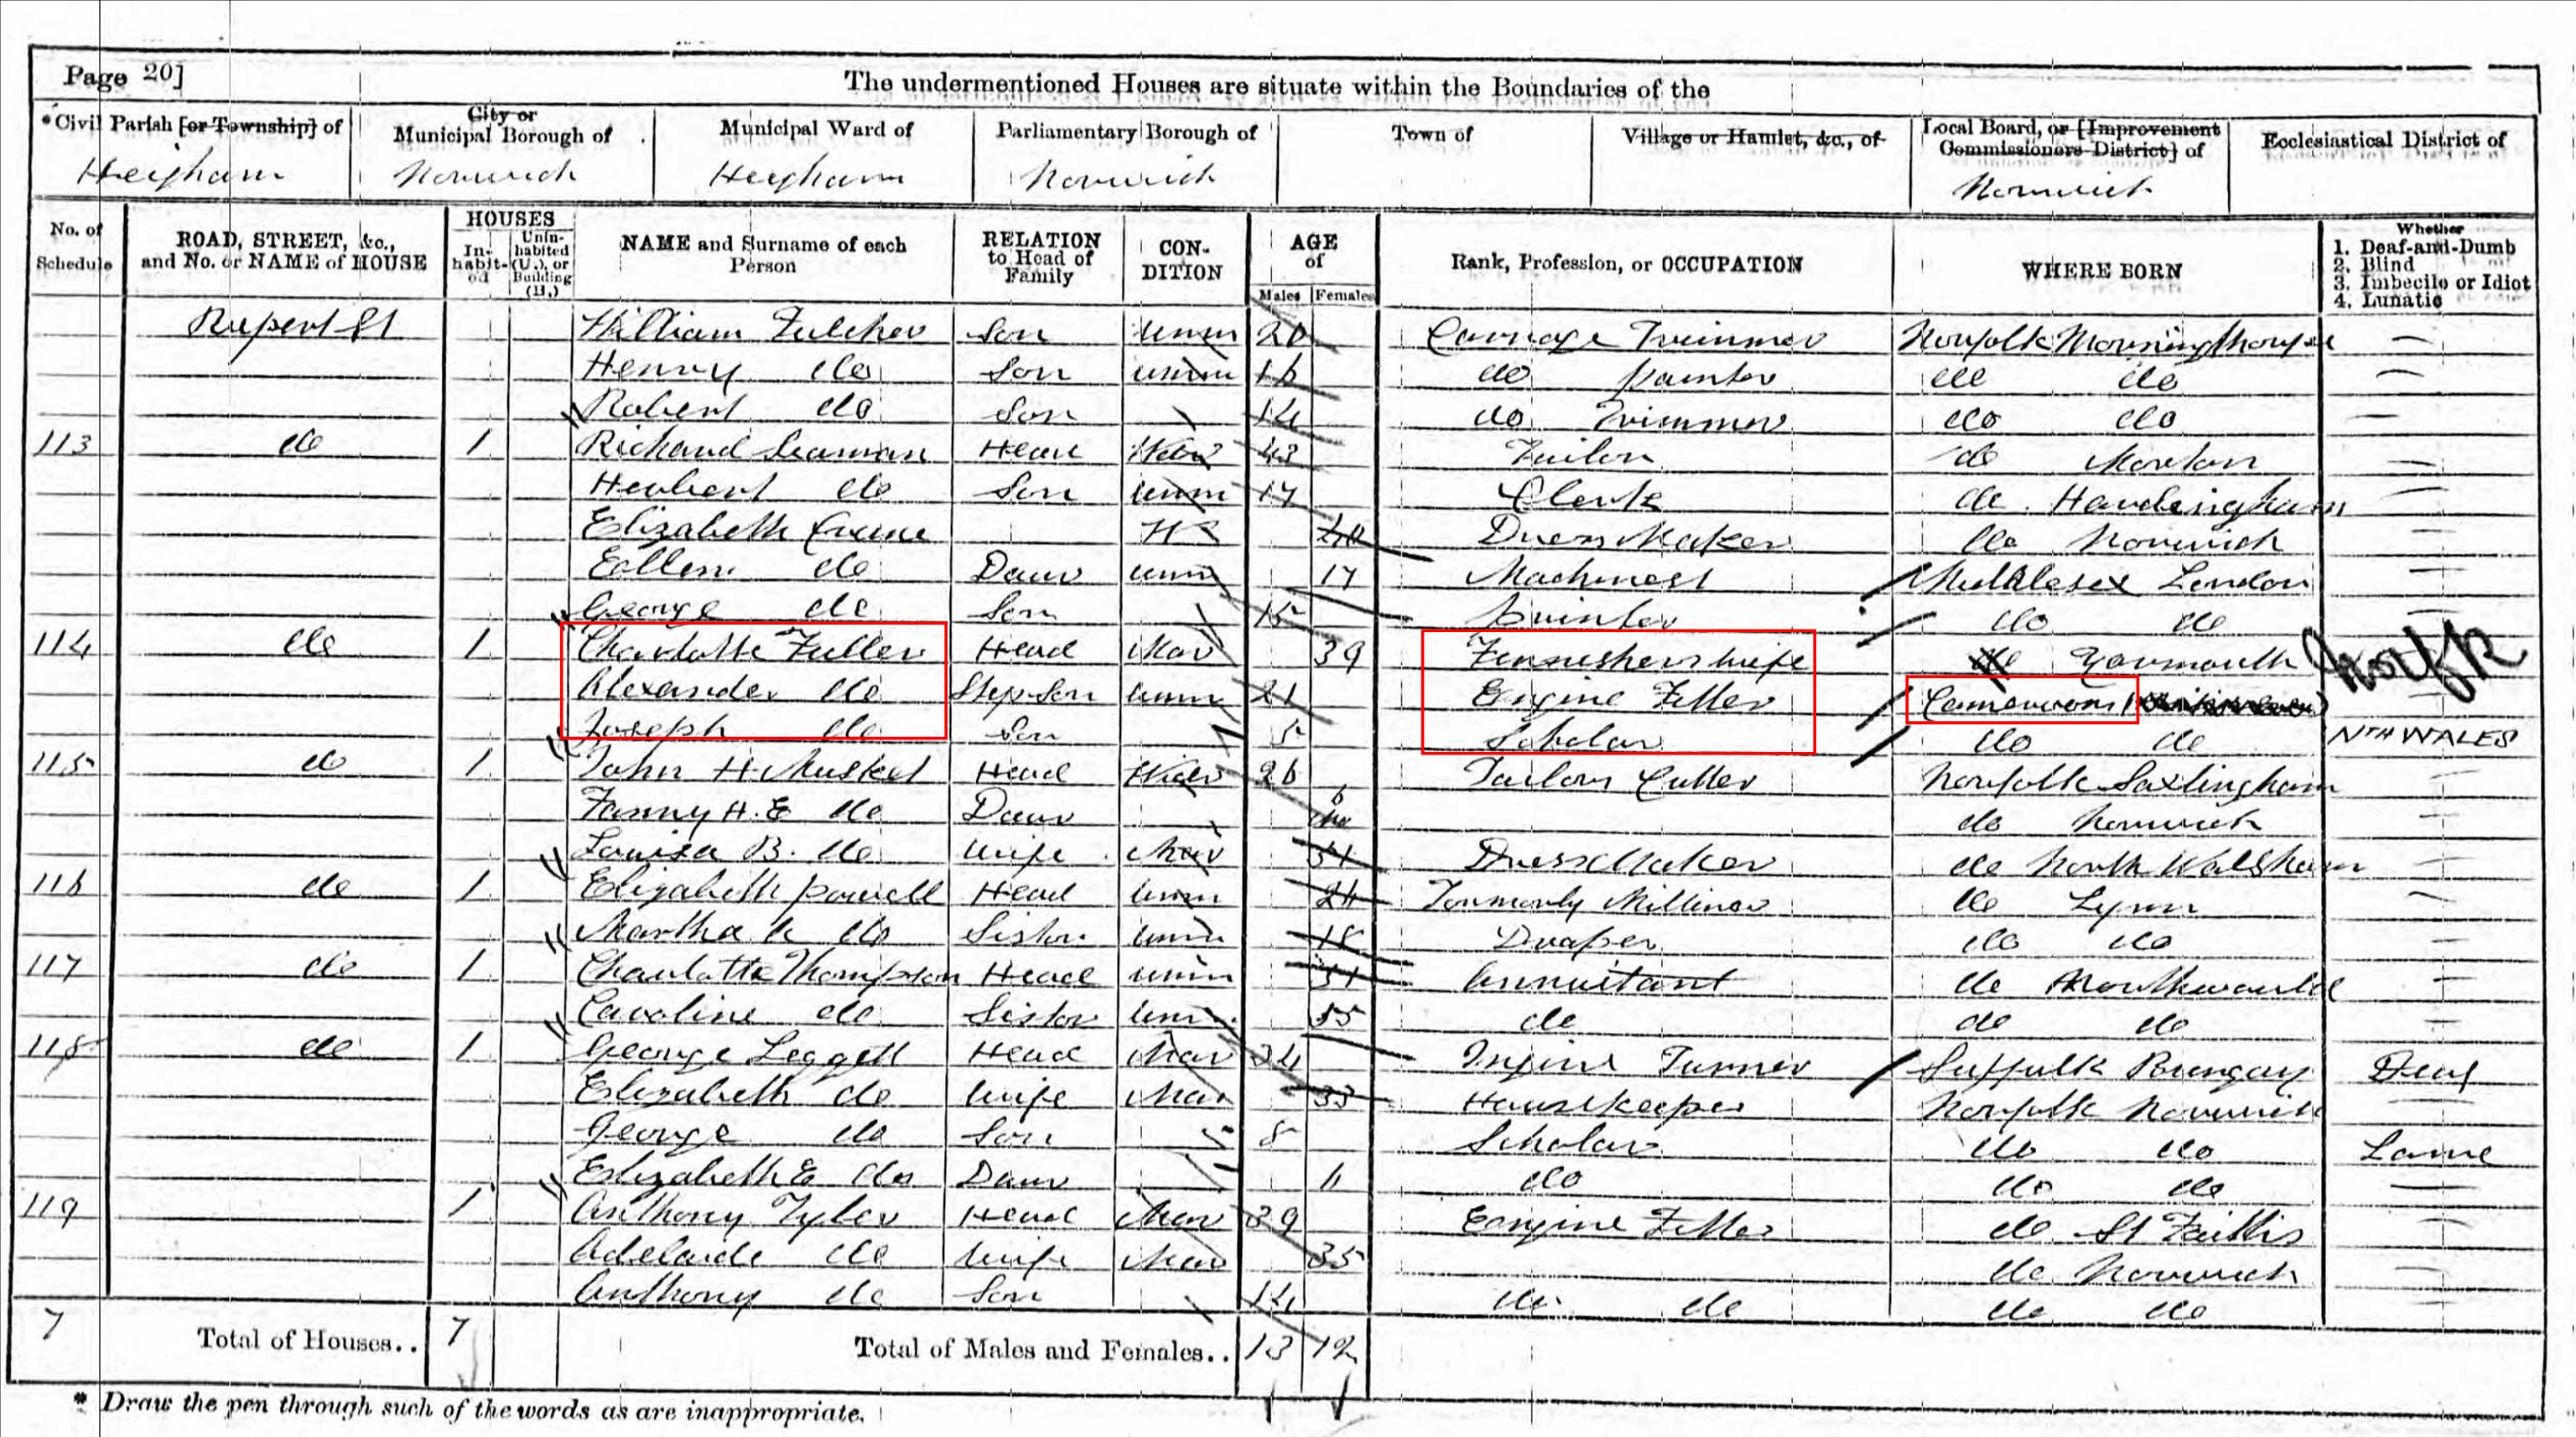 Page 20]
The undermentioned Houses are situate within the Boundaries of the
*Civil Parish [or Township] of
City or Municipal Borough of
Municipal Ward of
Parliamentary Borough of
Town of
Village or Hamlet, &c., of
Local Board, or [Improvement Commissioners District] of
Ecclesiastical District of
Heigham Norwich Heigham Norwich Norwich
No. of Schedule
ROAD, STREET, &c., and No. or NAME of HOUSE
HOUSES
In-habit-ed
Unin-habited (U.), or Building (B.)
NAME and Surname of each Person
RELATION to Head of Family
CON-DITION
AGE of
Males Females
Rank, Profession, or OCCUPATION
WHERE BORN
Whether
1. Deaf-and-Dumb
2. Blind
3. Imbecile or Idiot
4. Lunatic
Rupert St William Fulcher Son Unm 20 Carriage Trimmer Norfolk Morningthorpe
Henry do Son unm 16 do painter do do
Robert do Son 14 do Trimmer do do
113 do 1 Richard Seaman Head 43 do
Herbert do Son unm 17 Clerk do Hardingham
Elizabeth 40 Dress Maker do Norwich
Eallen do Daur unm 17 Machinest Middlesex London
George do Son 15 do do
114 do 1 Charlotte Fuller Head Mar 39 wife do Yarmouth Norfk
Alexander do Step-Son unm 21 Engine Fitter
Joseph do Son 5 Scholar do do NTH WALES
115 do 1 John H Musket Head 26 Tailors Cutter Norfolk Saxlingham
Fanny H. E do Daur 6 mo do Norwich
Louisa B. do Wife Mar Dress Maker do North Walsham
116 do 1 Elizabeth powell Head unm Formerly Milliner do Lynn
Martha do Sister unm 18 Draper do do
117 do 1 Charlotte Thompson Head unm 51 Annuitant do
Caroline do Sister unm 55 do do do
118 do 1 George Leggett Head Mar 34 Ingine Turner Suffolk Bungay Deaf
Elizabeth do Wife Mar 33 Housekeeper Norfolk Norwich
George do Son 8 Scholar do do Lame
Elizabeth E do Daur 6 do do do
119 1 Anthony Tyler Head Mar 39 Eangine Fitter do St Faiths
Adelaide do Wife Mar 35 do Norwich
Anthony do Son 14 do do do do
7 Total of Houses.. 7 Total of Males and Females.. 13 12
* Draw the pen through such of the words as are inappropriate.